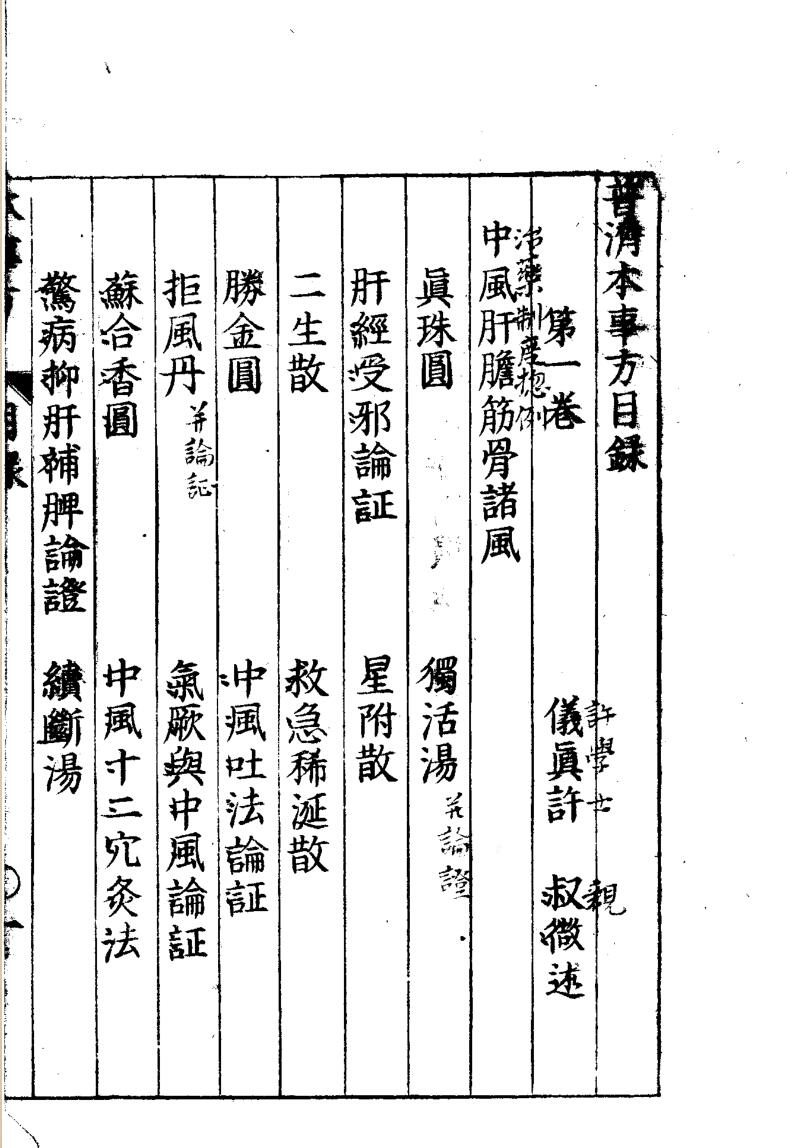 普濟本事方目録
許學士　親
第一卷　儀眞許　叔微述
治藥制度揔例
中風肝膽筋骨諸風
眞珠圓　獨活湯 并論證
肝經受邪論証　星附散
二生散　救急稀涎散
勝金圓　中風吐法論証
拒風丹 并論証　氣厥與中風論証
蘇合香圓　中風十二穴灸法
驚病抑肝補脾論證　續斷湯